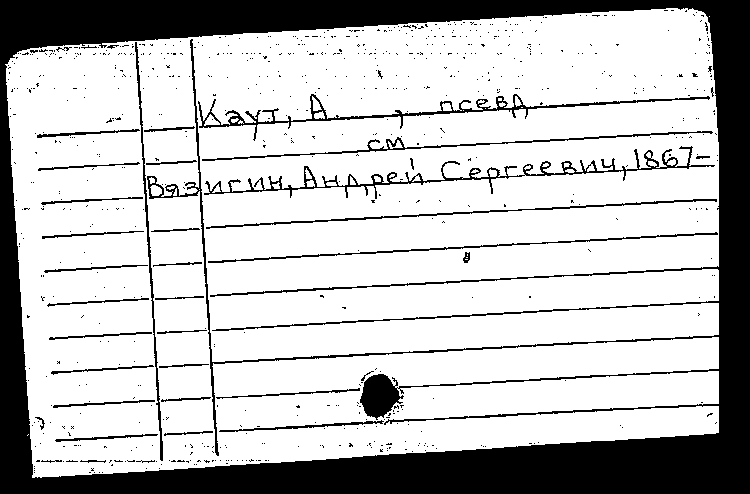 Каут, А. , псевд.
см.
Вязигин, Андрей Сергеевич, 1867-